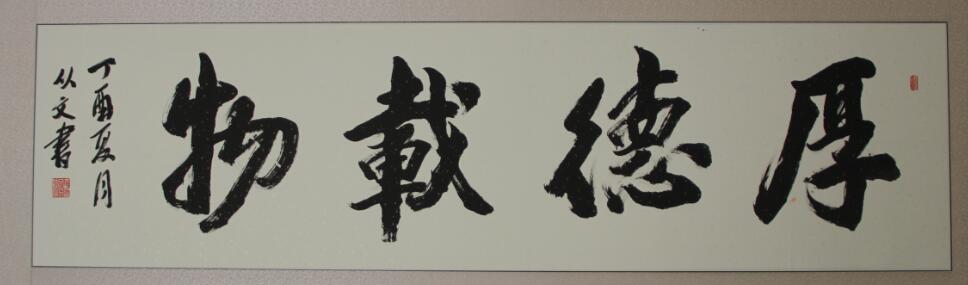 厚德載物
丁酉夏月
从文書